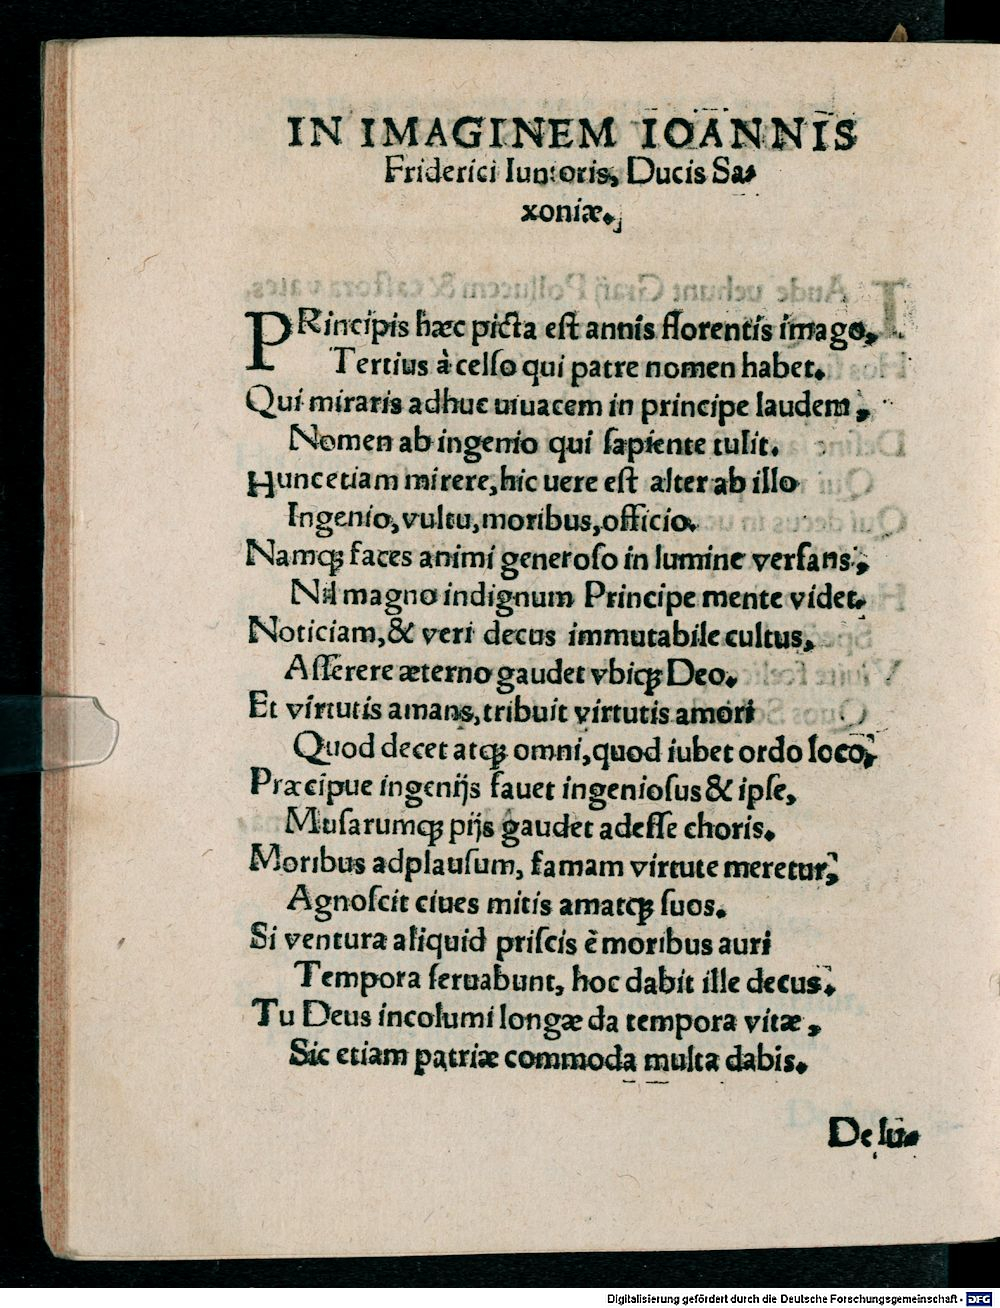 IN IMAGINEM IOANNIS
Friderici Iunioris, Ducis Sa-
xoniæ.
PRincipis hæc picta eſt annis florentis imago,
Tertius à celſo qui patre nomen habet.
Qui miraris adhuc uiuacem in principe laudem,
Nomen ab ingenio qui ſapiente tulit.
Hunc etiam mirere, hic uere eſt alter ab illo
Ingenio, vultu, moribus, officio.
Namqꝫ faces animi generoſo in lumine verſans,
Nil magno indignum Principe mente videt.
Noticiam, & veri decus immutabile cultus,
Aſſerere æterno gaudet vbiqꝫ Deo.
Et virtutis amans, tribuit virtutis amori
Quod decet atqꝫ omni, quod iubet ordo loco,
Præcipue ingenijs fauet ingenioſus & ipſe,
Muſarumqꝫ pijs gaudet adeſſe choris.
Moribus adplauſum, famam virtute meretur,
Agnoſcit ciues mitis amatqꝫ ſuos.
Si ventura aliquid priſcis ẽ moribus auri
Tempora ſeruabunt, hoc dabit ille decus.
Tu Deus incolumi longæ da tempora vitæ,
Sic etiam patriæ commoda multa dabis.
De ſu-
Digitalisierung gefördert durch die Deutsche Forschungsgemeinschaft - DFG